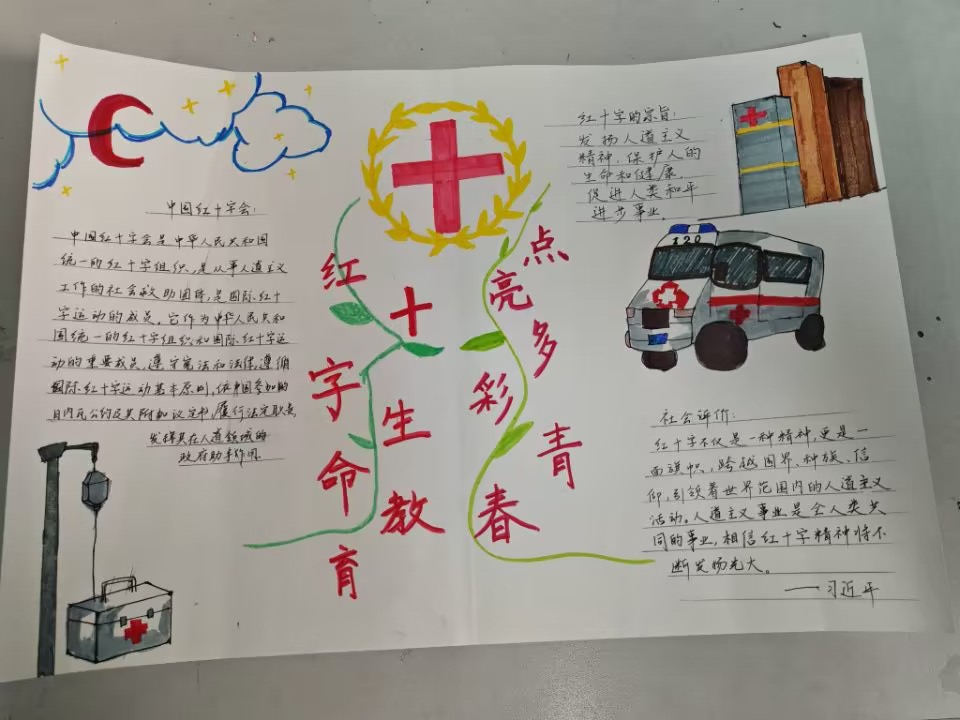 中国红十字会:
中国红十字会是中华人民共和国
统一的红十字组织,是从事人道主义
工作的社会救助团体,是国际红十
字运动的成员。它作为中华人民共和
国统一的红十字组织和国际红十字运
动的重要成员,遵守宪法和法律,遵循
国际红十字运动基本原则,依照国参加的
日内瓦公约及其附加议定书,履行法定职责
发挥其在人道领域的
政府助手作用
红十字生命教育
点亮多彩青春
红十字的宗旨:
发扬人道主义
精神,保护人的
生命和健康,
促进人类和平
进步事业。
120
社会评价:
红十字不仅是一种精神,更是一
面旗帜,跨越国界、种族、信
仰,引领着世界范围内的人道主义
活动。人道主义事业是全人类共
同的事业,相信红十字精神将不
断发扬光大。
——习近平